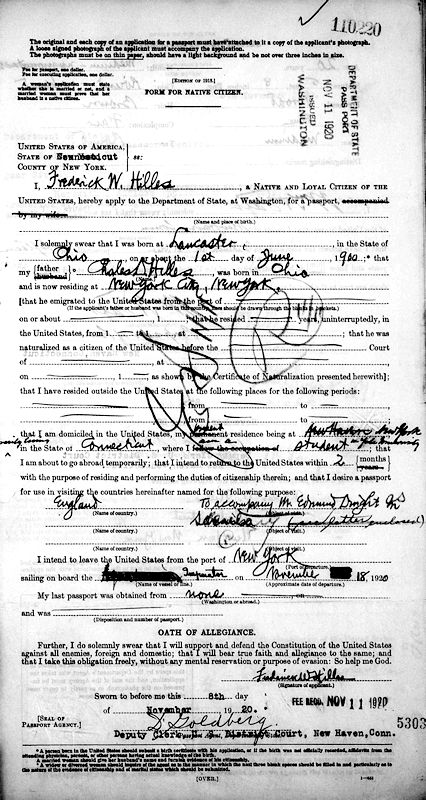 110220
The original and each copy of an application for a passport must have attached to it a copy of the applicant's photograph.
A loose signed photograph of the applicant must accompany the application.
The photographs must be on thin paper, should have a light background and be not over three inches in size.
Fee for passport, one dollar.
Fee for executing application, one dollar.
A woman's application must state whether she is married or not, and a married woman must prove that her husband is a native citizen.
[EDITION OF 1915.]
FORM FOR NATIVE CITIZEN.
DEPARTMENT OF STATE
PASSPORT
NOV 11 1920
ISSUED
WASHINGTON
UNITED STATES OF AMERICA,
STATE OF Connecticut ss:
COUNTY OF NEW YORK.
I, Frederick W. Hilles, a NATIVE AND LOYAL CITIZEN OF THE
UNITED STATES, hereby apply to the Department of State, at Washington, for a passport, accompanied
by my wife
(Name and place of birth.)
I solemnly swear that I was born at Lancaster, in the State of
Ohio, on or about the 1st day of June, 1900; that
my [father husband] Charles D Hilles, was born in Ohio
and is now residing at New York City, New York,
[that he emigrated to the United States from the port of
(If the applicant's father or husband was born in this country, lines should be drawn through the blanks in brackets.)
on or about 1 that he resided years, uninterruptedly, in
the United States, from 1 to 1, at ; that he was
naturalized as a citizen of the United States before the Court
of, at
on 1, as shown by the Certificate of Naturalization presented herewith];
that I have resided outside the United States at the following places for the following periods:
from to
from to
that I am domiciled in the United States, my permanent residence being at New Haven
in the State of Connecticut, where I follow the occupation of am a student
I am about to go abroad temporarily; that I intend to return to the United States within 2 [months years]
with the purpose of residing and performing the duties of citizenship therein; and that I desire a passport
for use in visiting the countries hereinafter named for the following purpose:
England To accompany Mr. Edmund Dwight
(Name of country.) (Object of visit.)
(Name of country.) (Object of visit.)
(Name of country.) (Object of visit.)
I intend to leave the United States from the port of New York
(Port of departure.)
sailing on board the Imperator on November 18, 1920
(Name of vessel or line.) (Approximate date of departure.)
My last passport was obtained from none
(Washington or abroad.)
and was
(Disposition and number of passport.)
OATH OF ALLEGIANCE.
Further, I do solemnly swear that I will support and defend the Constitution of the United States
against all enemies, foreign and domestic; that I will bear true faith and allegiance to the same; and
that I take this obligation freely, without any mental reservation or purpose of evasion: So help me God.
Frederick W. Hilles
(Signature of applicant.)
Sworn to before me this 8th day
FEE RECD. NOV 11 1920
of November 1920.
[SEAL OF
PASSPORT AGENCY.]
D. Goldberg
5303
Deputy Clerk, U.S. District Court, New Haven, Conn.
* A person born in the United States should submit a birth certificate with his application, or if the birth was not officially recorded, affidavits from the attending physician, parents, or other persons having actual knowledge of the birth.
A married woman should give her husband's name and furnish evidence of his citizenship.
[OVER.]